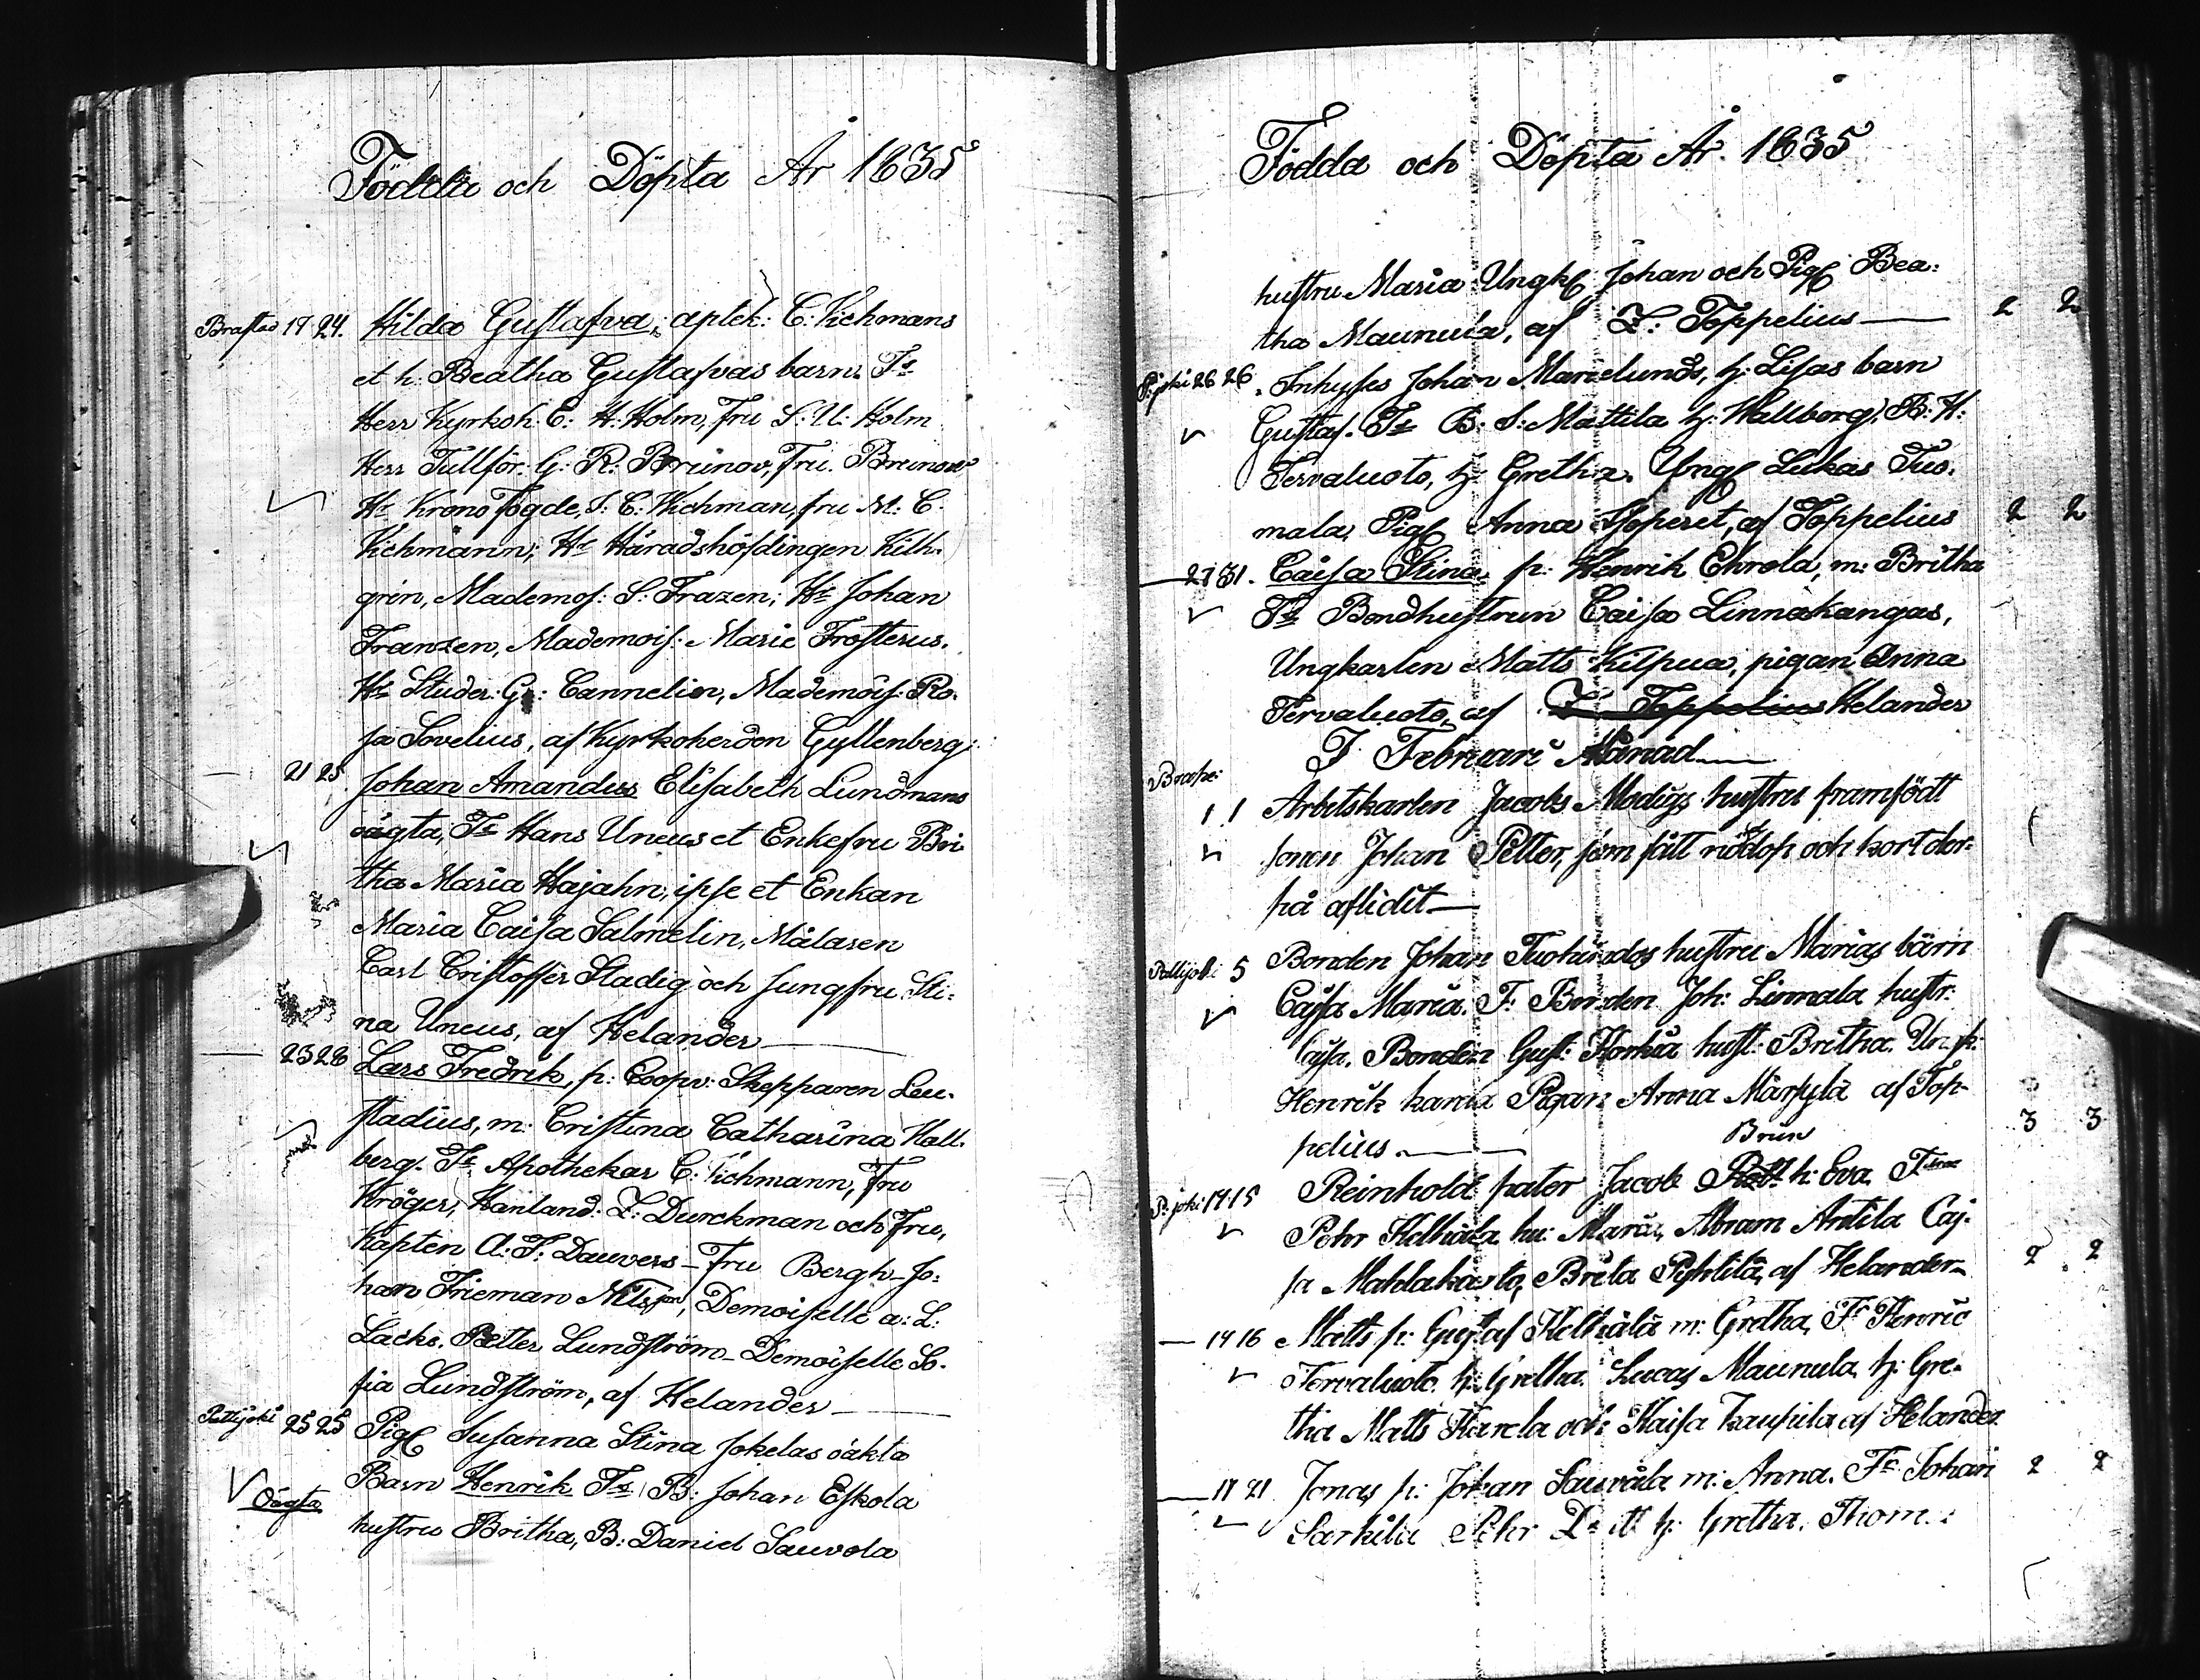 Födda och Döpta År 1835
Brastad 17 24. Hilda Gustafva, aptek: C: Vichmans
et h. Beatha Gustafvas barn. Ts
Herr Kyrkoh. E: H: Holm, fru S: U: Holm
Herr Tullför: G: R: Brunov, Fru. Brunow
Hr Krono Fogde, J: C: Wichman, fru M: C.
Vichmann; Hr Häradshöfdingen Kilh.
grin, Mademos: S: Frazen; Hr Johan
Franzen, Mademois: Marie Frosterus.
Hr Studer: G: Cannelin, Mademois: Ro.
sa Sovelius, af Kyrkoherden Gyllenberg;
21 25 Johan Amandus Elisabeth Lundmans
oägta, Ts Hans Uneus et Enkefru Bri
tha Maria Hajahn, ipse et Enkan
Maria Caisa Salmelin, Målaren
Carl Cristoffer Stadig och Jungfru Sti:
na Uneus, af Helander
23 28 Lars Fredrik, p: Coopv: Skepparen Leu.
stadius, m: Cristina Catharina Hall.
berg. Ts Apothekar C: Vichmann, Fru
Kröger, Hanland: Z: Durckman och Fru,
Kapten A: F: Dauvers – Fru Bergh – Jo:
han Frieman Nilsson, Demoiselle a: L:
Lacks. Petter Lundström – Demoiselle So.
fia Lundström, af Helander
Pattijoki 25 25 Pig Susanna Stina Jokelas oäkta
Barn Henrik Ts B: Johan Eskola
Oägta hustru Britha, B: Daniel Sauvola
Födda och Döpta År. 1835
hustru Maria Ungk Johan och Pig Bea:
tha Maunula, af Z: Toppelius 2 2
P: joki 26 26. Inhyses Johan Marielunds, h: Lisas barn
Gustaf. Ts B: S: Mattila h: Wallborg, B: H:
Tervaluoto, h: Gretha. Ung Lukas Tuo.
mala, Pig Anna Sloperet, af Toppelius 2 2
27 31. Caisa Stina p: Henrik Ekrola, m: Britha
Ts Bondhustrun Caisa Linnakangas,
Ungkarlen Matts Kilpua, pigan Anna
Tervaluoto, af Z Toppelius Helander
I Februari Månad
Brahe:
1 1 Arbetskarlen Jacobs Modigs hustru framfödt
sonen Johan Petter, som fått nöddop och kort der:
på aflidit
Pattijoki 5 Bonden Johan Tuohinos hustru Marias barn
Cajsa Maria. F: Bonden Joh: Linnala hustr:
Cajsa. Bonden Gust: Korkia hust: Britha. Ungk:
Henrik kana Pigan Anna Märsylä af Top-
pelius 3 3
Brun
P: joki 14 15 Reinhold pater Jacob h: Eva. F
Pehr Kelhälä hu: Maria, Abram Antila Caj-
sa Mahlakasto, Breta Pyhtilä, af Helander 2 2
14 16 Matts p: Gustaf Kelhälä m: Gretha, Fr Henric
Tervaluoto h: Gretha. Lucas Maunula h: Gre-
tha Matts Karela och Kaisa Kaupila af Helander
17 21 Jonas p: Johan Sauvåla m: Anna. Fr Johan 2 2
Sarkila Pehr h: Gretha. Thom: